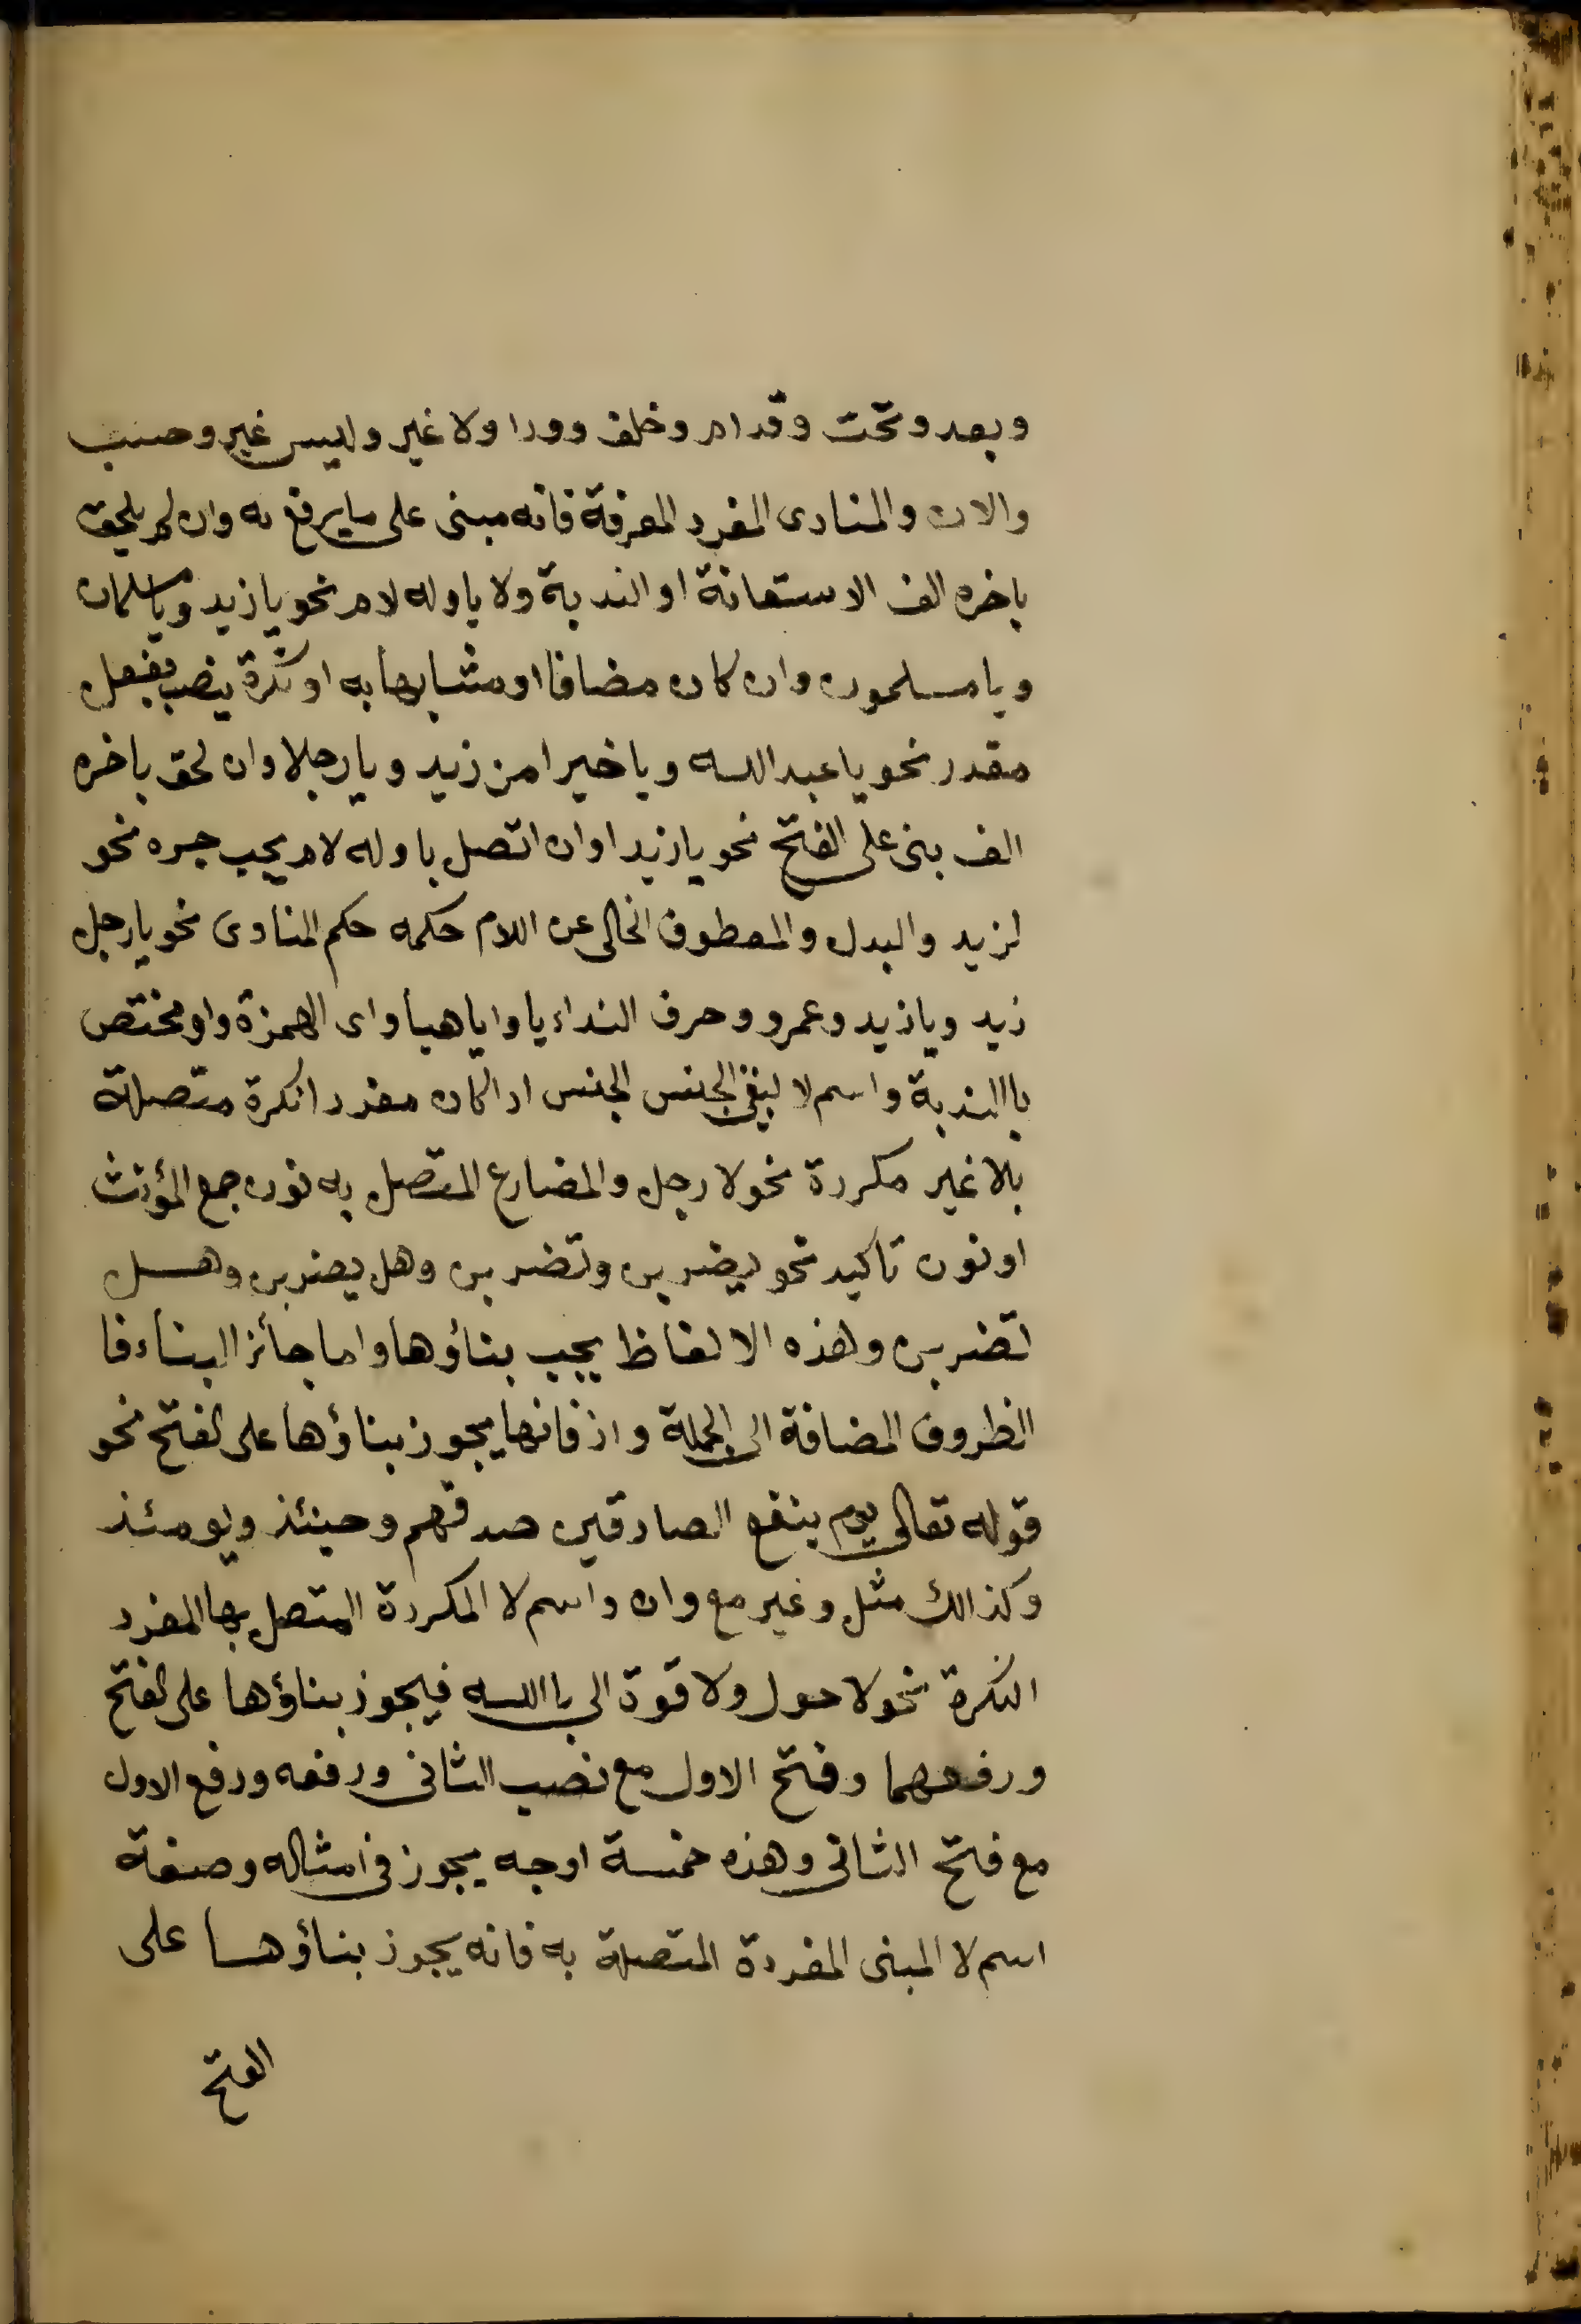 وبعد وتحت وقدام وخلف وورا ولا غير وليس غير وحسب
والان والمنادى المفرد المعرفة فانه مبنى على ما يرفع به وان لم يلحق
باخره الف الاستعانة او الندبة ولا باوله لام نحو يا زيد ويا مسلمان
ويا مسلمون وان كان مضافا او مشابها به او نكرة ينصب بفعل
مقدر نحو يا عبد الله ويا خيرا من زيد ويا رجلا وان لحق باخره
الف بنى على الفتح نحو يا زيدا وان اتصل باوله لام يجب جره نحو
لزيد والبدل والمعطوف الخالى عن اللام حكمه حكم المنادى نحو يا رجل
زيد ويا زيد وعمرو وحرف النداء يا وايا هيا واى الهمزة واو مختص
باالندبة واسم لا لنفى الجنس الجنس اذا كان مفردا نكرة متصلة
بلا غير مكررة نحو لا رجل والمضارع المتصل به نون جمع المؤنث
او نون تاكيد نحو يضربن وتضربن وهل يضربن وهل
تضربن وهذه الالفاظ يجب بناؤها واما جائز البناء فا
الظروف المضافة الى الجملة واذ فانها يجوز بناؤها على الفتح نحو
قوله تعالى يوم ينفع الصادقين صدقهم وحينئذ ويومئذ
وكذالك مثل وغير مع وان واسم لا المكررة المتصل بها المفرد
النكرة نحو لا حول ولا قوة الى باالله فيجوز بناؤها على الفتح
ورفعهما وفتح الاول مع نصب الثانى ورفعه ورفع الاول
مع فتح الثانى وهذه خمسة اوجه يجوز فى امثاله وصفة
اسم لا المبنى المفردة المتصلة به فانه يجوز بناؤها على
الفتح